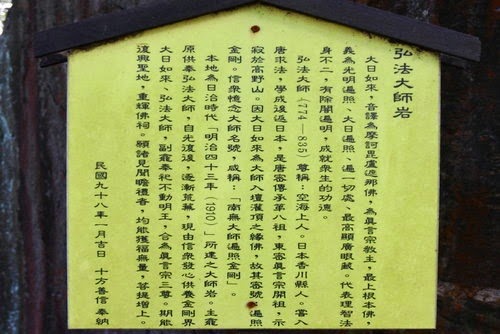 弘法大師岩
大日如來，音譯為摩訶毘盧遮那佛，為真言宗教主，最上根本佛。
義為光明遍照、大日遍照、遍一切處、最高顯廣眼藏。代表理智法
身不二，有除闇遍明，成就眾生的功德。
弘法大師（774—835）尊稱：空海上人。日本香川縣人。嘗入
唐求法，學成後返日本，是唐密傳承第八祖，東密真言宗開祖，示
寂於高野山。因大日如來為大師入壇灌頂之緣佛，故其密號：遍照
金剛。信眾憶念大師名號，咸稱：「南無大師遍照金剛」。
本地為日治時代「明治四十三年（1910）」所建之大師岩。主龕
原供奉弘法大師，自光復後，逐漸荒蕪，現由信眾發心供養金剛界
大日如來、弘法大師，副龕奉祀不動明王，合為真言宗三尊。期能
復興聖地，重輝佛祠。願諸見聞瞻禮者，均能獲福無量，菩提增上。
民國九十八年一月吉日　十方善信奉納